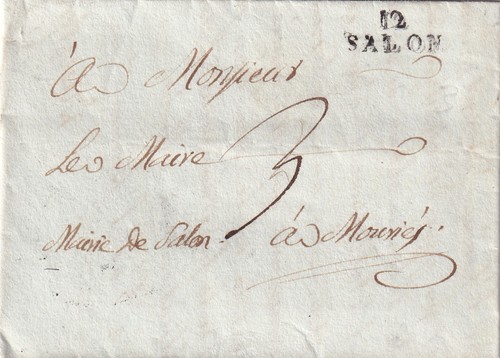 12
SALON
à Monsieur
Le Maire
3
Mairie de Salon. à Mouriés.